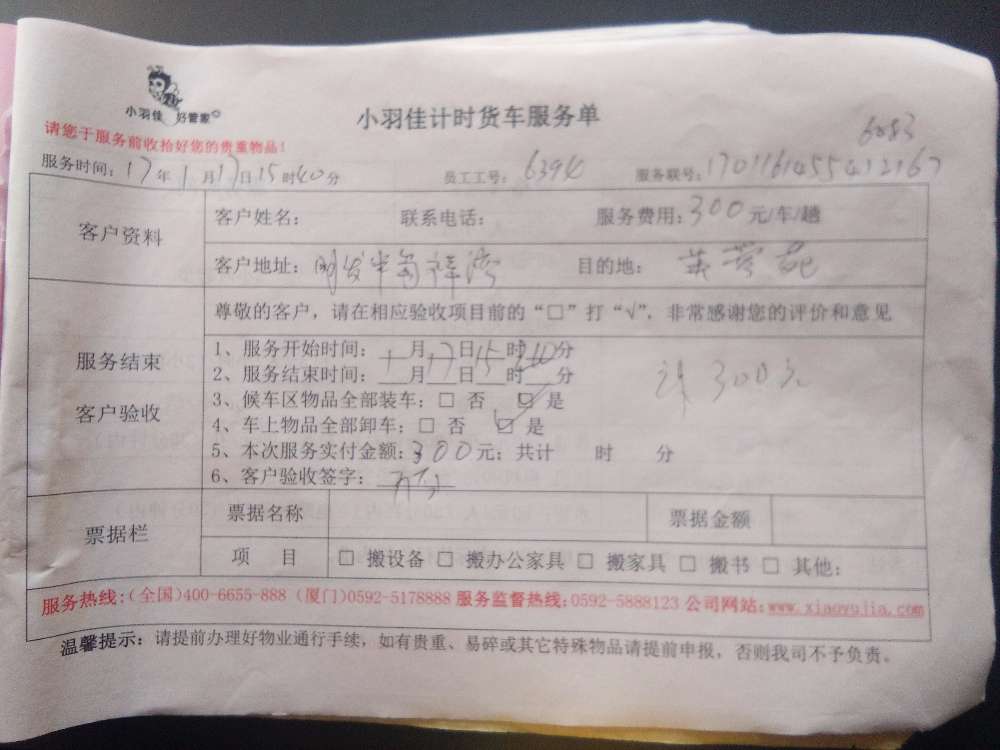 小羽佳 好管家
小羽佳计时货车服务单
6083
请您于服务前收拾好您的贵重物品!
服务时间: 17年1月17日15时40分 员工工号: 6394 服务联号: 1701161455412167
客户资料
客户姓名: 联系电话: 服务费用: 300元/车/趟
客户地址: 明发半岛祥湾 目的地:
服务结束
客户验收
尊敬的客户，请在相应验收项目前的“□”打“√”，非常感谢您的评价和意见
1、服务开始时间: 1月17日15时40分
2、服务结束时间: 月 日 时 分
计300元
3、候车区物品全部装车: □ 否 ☑ 是
4、车上物品全部卸车: □ 否 ☑ 是
5、本次服务实付金额: 300元; 共计 时 分
6、客户验收签字:
票据栏
票据名称 票据金额
项 目 □ 搬设备 □ 搬办公家具 □ 搬家具 □ 搬书 □ 其他:
服务热线:(全国)400-6655-888 (厦门)0592-5178888 服务监督热线:0592-5888123 公司网站:www.xiaoyujia.com
温馨提示: 请提前办理好物业通行手续，如有贵重、易碎或其它特殊物品请提前申报，否则我司不予负责。